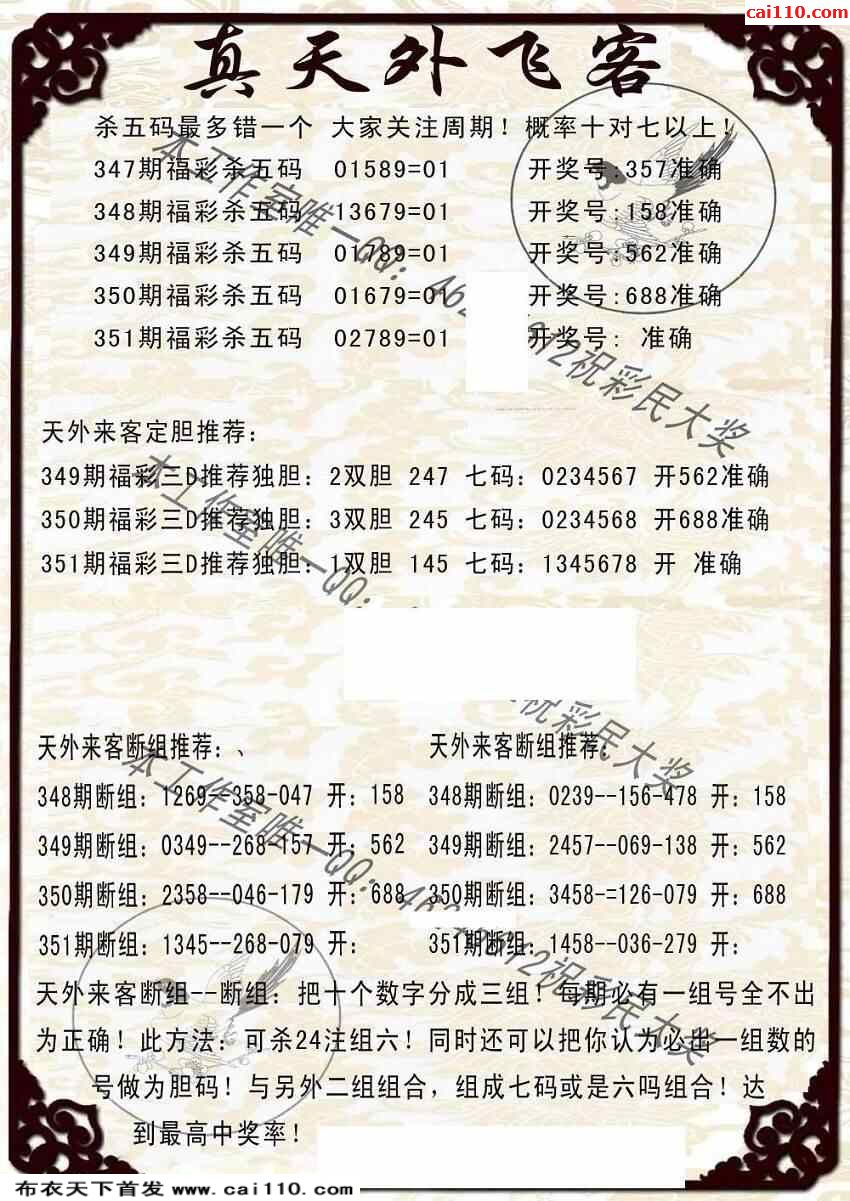 cai110.com
真天外飞客
杀五码最多错一个 大家关注周期！概率十对七以上！
347期福彩杀五码 01589=01 开奖号:357准确
348期福彩杀五码 13679=01 开奖号:158准确
349期福彩杀五码 01789=01 开奖号:562准确
350期福彩杀五码 01679=01 开奖号:688准确
351期福彩杀五码 02789=01 开奖号: 准确
天外来客定胆推荐：
349期福彩三D推荐独胆：2双胆 247 七码：0234567 开562准确
350期福彩三D推荐独胆：3双胆 245 七码：0234568 开688准确
351期福彩三D推荐独胆：1双胆 145 七码：1345678 开 准确
天外来客断组推荐：、 天外来客断组推荐：
348期断组：1269--358-047 开：158 348期断组：0239--156-478 开：158
349期断组：0349--268-157 开：562 349期断组：2457--069-138 开：562
350期断组：2358--046-179 开：688 350期断组：3458-=126-079 开：688
351期断组：1345--268-079 开： 351期断组：1458--036-279 开：
天外来客断组--断组：把十个数字分成三组！每期必有一组号全不出
为正确！此方法：可杀24注组六！同时还可以把你认为必出一组数的
号做为胆码！与另外二组组合，组成七码或是六吗组合！达
到最高中奖率！
本工作室唯一QQ：
祝彩民大奖
本工作室唯一QQ：
祝彩民大奖
本工作室唯一QQ：
祝彩民大奖
布衣天下首发 www.cai110.com